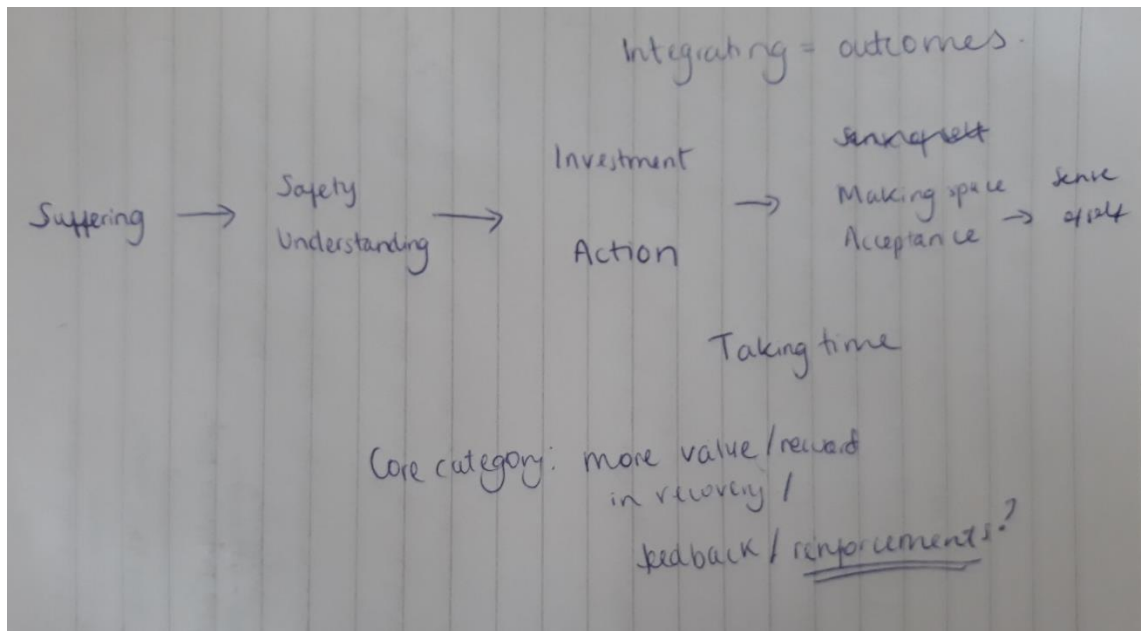 Integrating = outcomes.
Suffering → Safety
Understanding → Investment
Action → sense of self
Making space
Acceptance → sense
of self
Taking time
Core category: more value / reward
in recovery /
feedback / reinforcements?